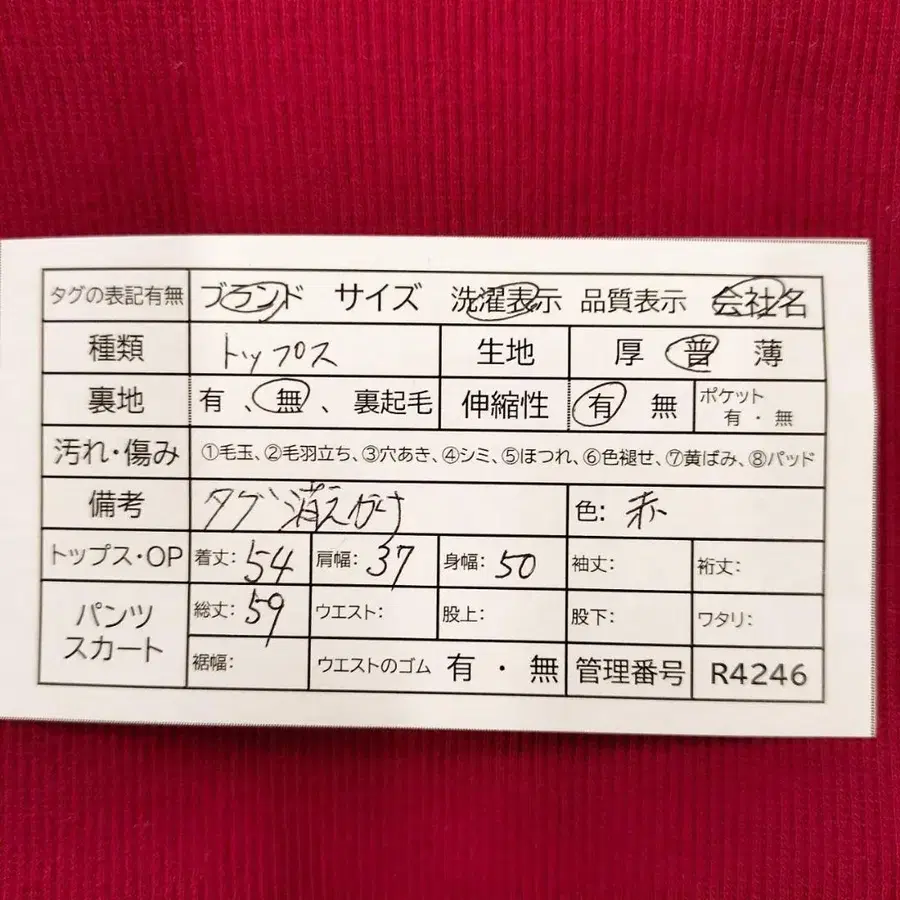 タグの表記有無 ブランド サイズ 洗濯表示 品質表示 会社名
種類 トップス 生地 厚 普 薄
裏地 有 、無 、裏起毛 伸縮性 有 無 ポケット 有・無
汚れ・傷み ①毛玉、②毛羽立ち、③穴あき、④シミ、⑤ほつれ、⑥色褪せ、⑦黄ばみ、⑧パッド
備考 タグ消えかけ 色: 赤
トップス・OP 着丈: 54 肩幅: 37 身幅: 50 袖丈: 裄丈:
パンツ スカート 総丈: 59 ウエスト: 股上: 股下: ワタリ:
裾幅: ウエストのゴム 有・無 管理番号 R4246